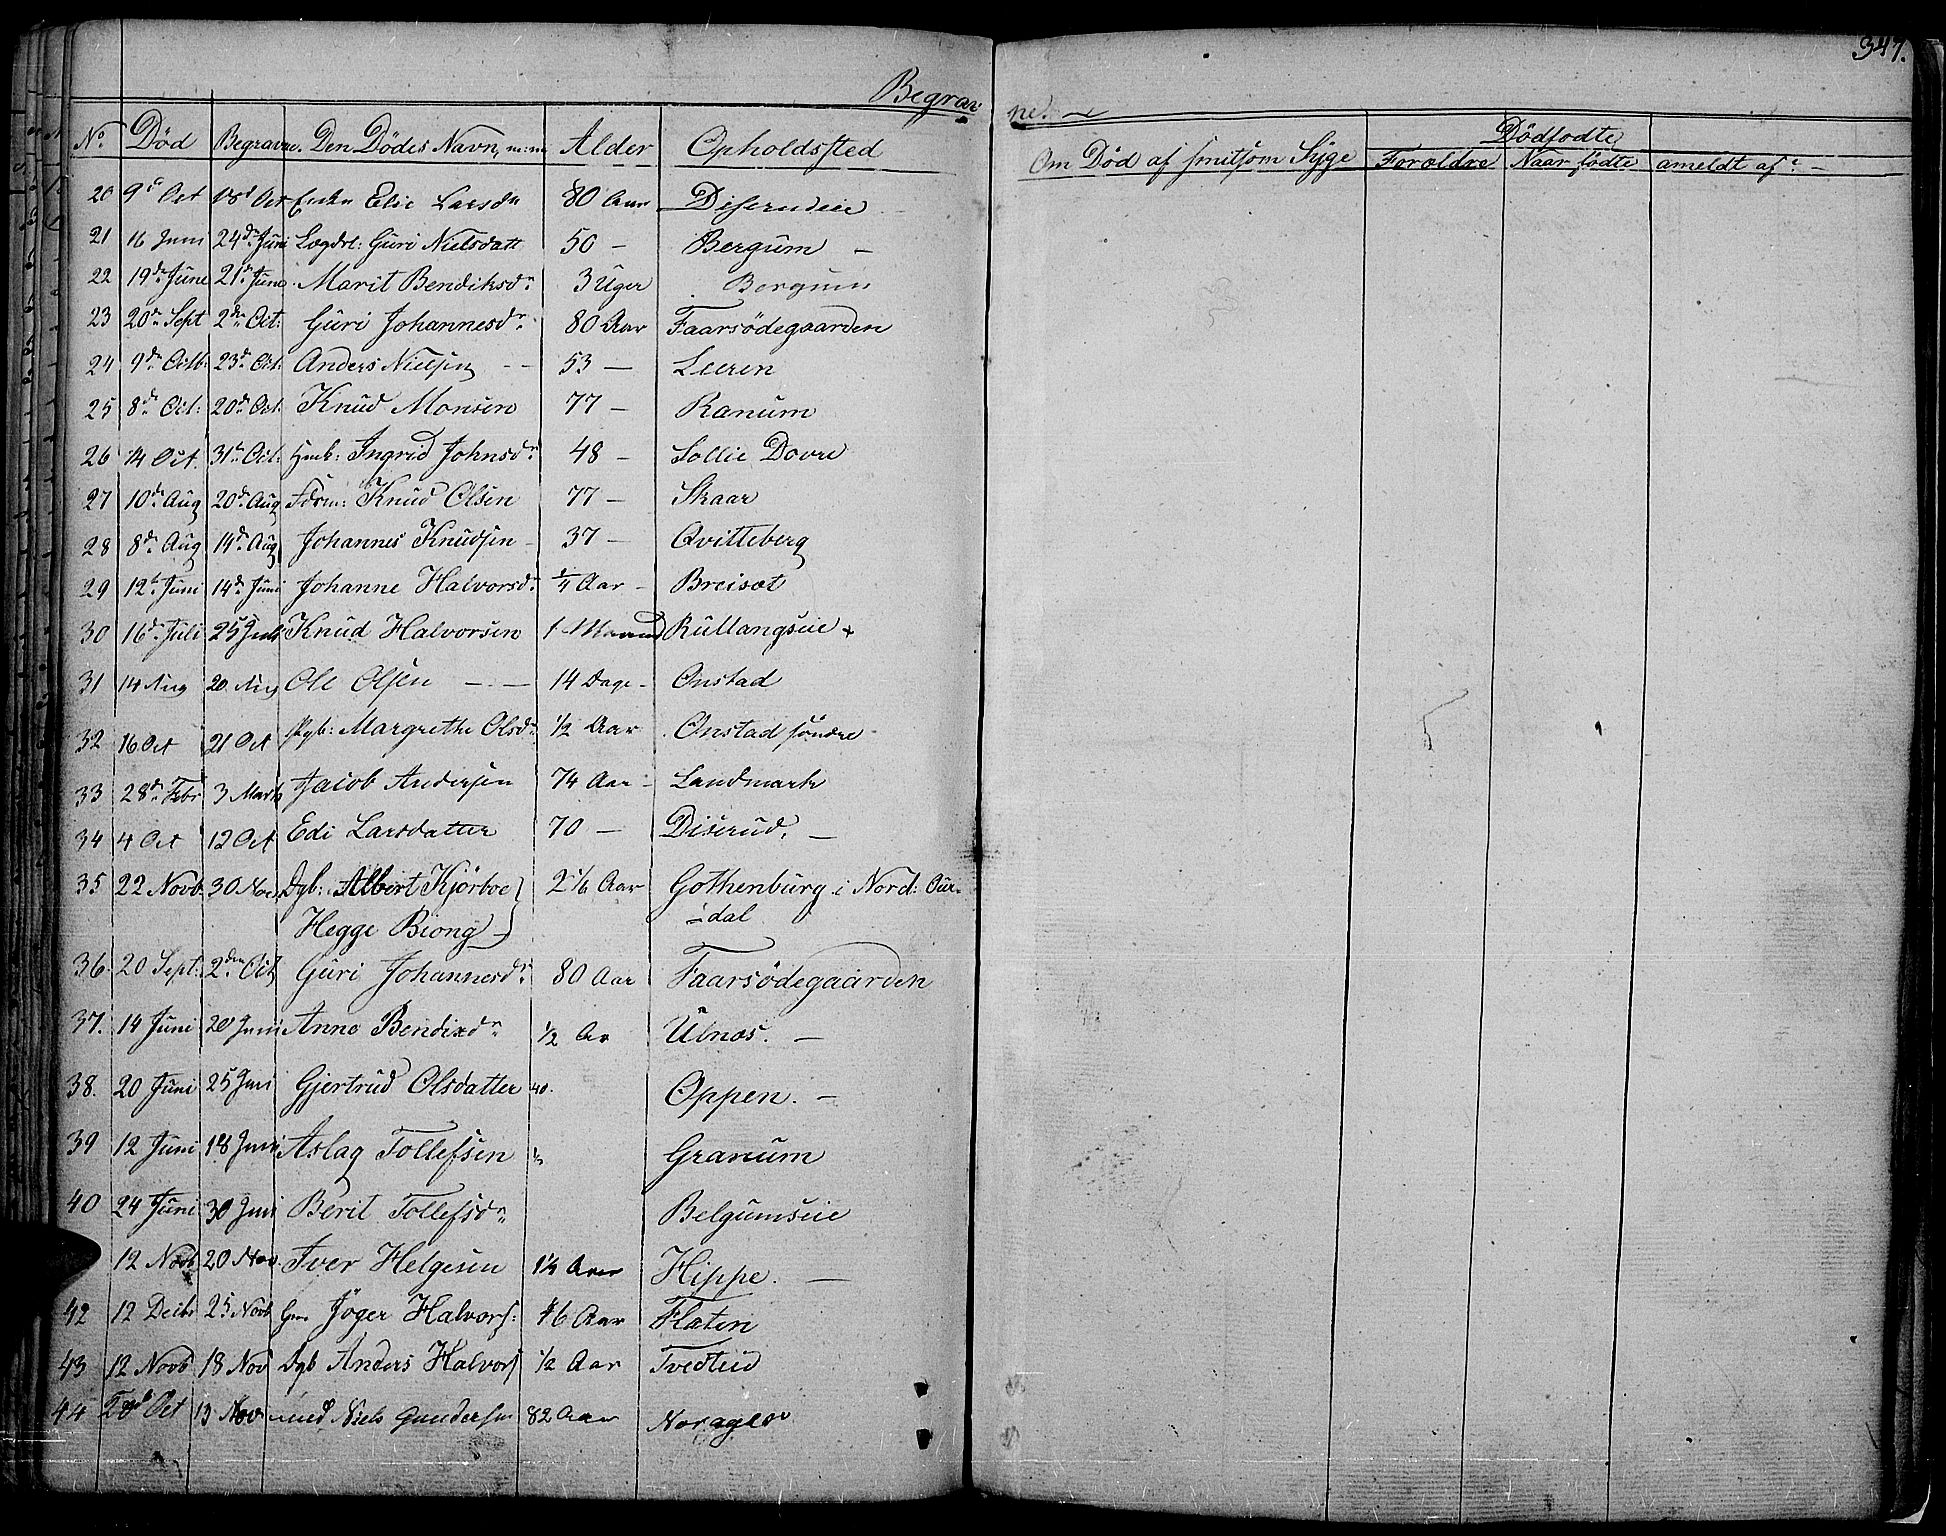 347.
Begravne.
No. Død Begravne. Den Dödes Navn, m:m Alder Opholdsted Om Död af smitsom Syge Dödfødte
Forældre Naar födte ameldt af
20 9de Oct 18d Oct Enke Elie Larsdn 80 Aar Diserudeie
21 16 Juni 24de Juni Lægdsl: Guri Nielsdatt 50 — Bergum —
22 19de June 21de June Marit Bendiksdr 3 Uger Bergum
23 20de Sept 2den Oct: Guri Johannesdr 80 Aar Faarsödegaarden
24 9de Octb: 23de Oct: Anders Nielsen — 53 — Leeren
25 8de Oct: 20de Oct: Knud Monsen 77 — Ranum
26 14 Oct. 31te Oct: Hmb: Ingrid Johnsdr 48 — Sollie Dovre
27 10de Aug 20de Aug Fdrm: Knud Olsen 77 — Skaar
28 8de Aug 14de Aug Johannes Knudsen 37 — Qvitteberg
29 12te Juni 14de Juni Johanne Halvorsdr 1/4 Aar — Breisæt
30 16de Juli 25 Juli Knud Halvorsen 1 Maaned Rullangseie
31 14 Aug 20 Aug Ole Olsen — — 14 Dage — Onstad
32 16 Oct 21 Oct Pgb: Margrethe Olsdr 1/2 Aar Onstad söndre
33 28de Febr 3 Marts Jacob Andersen 74 Aar — Landmark
34 4 Oct 12 Oct Edi Larsdatter 70 — Diserud. —
35 22 Novb. 30 Nov. Dgb: Albert Kjörboe 2 1/6 Aar Gothenburg i Nord: Our-
Hegge Biong dal
36. 20 Sept: 2den Oct Guri Johannesdr 80 Aar Faarsödegaarden
37. 14 Juni 20 Juni Anne Bendixdr 1/2 Ar Ulnæs. —
38. 20 Juni 25 Juni Gjertrud Olsdatter 40. Oppen. —
39 12 Juni 18 Juni Aslag Tollefsen Granum
40 24 Juni 30 Juni Berit Tollefsdr Belgumseie
12 Novb 20 Nov Iver Helgesen 1/4 Aar Hippe. —
42 12 Decbr 25 Novb Gm Jöger Halvors: 46 Aar Flaten
43 12 Novb 18 Nov Dgb Anders Halvors 1/2 Aar Tvedteie
44 28de Oct 13 Nov Niels Gundersen 82 Aar